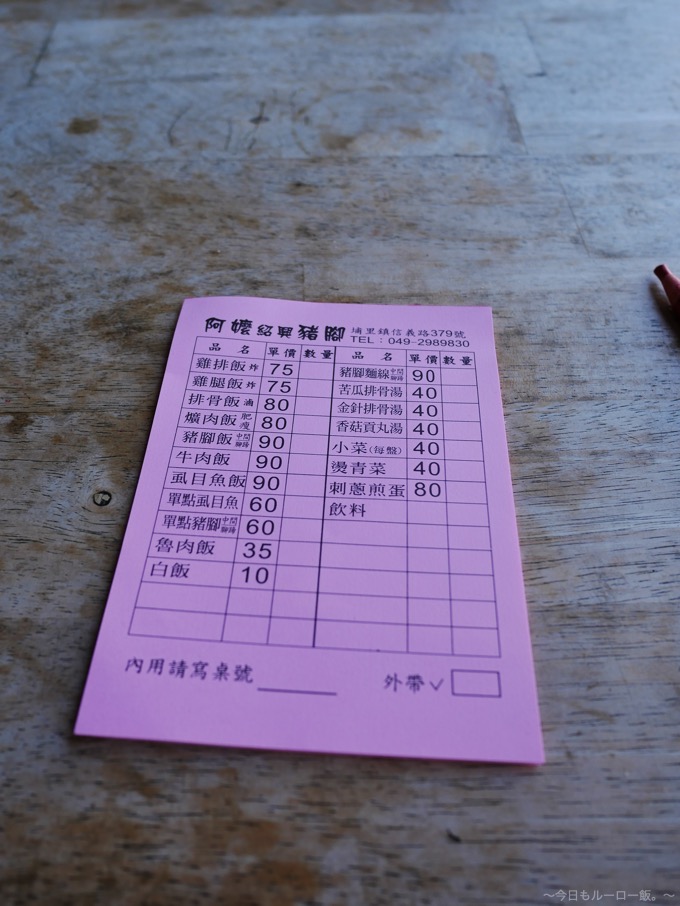 阿嬤紹興豬腳 埔里鎮信義路379號
TEL：049-2989830
品名 單價 數量
雞排飯炸 75
雞腿飯炸 75
排骨飯滷 80
爌肉飯肥瘦 80
豬腳飯中間腳蹄 90
牛肉飯 90
虱目魚飯 90
單點虱目魚 60
單點豬腳中間腳蹄 60
魯肉飯 35
白飯 10
品名 單價 數量
豬腳麵線中間腳蹄 90
苦瓜排骨湯 40
金針排骨湯 40
香菇貢丸湯 40
小菜(每盤) 40
燙青菜 40
刺蔥煎蛋 80
飲料
內用請寫桌號
外帶✓
～今日もルーロー飯。～